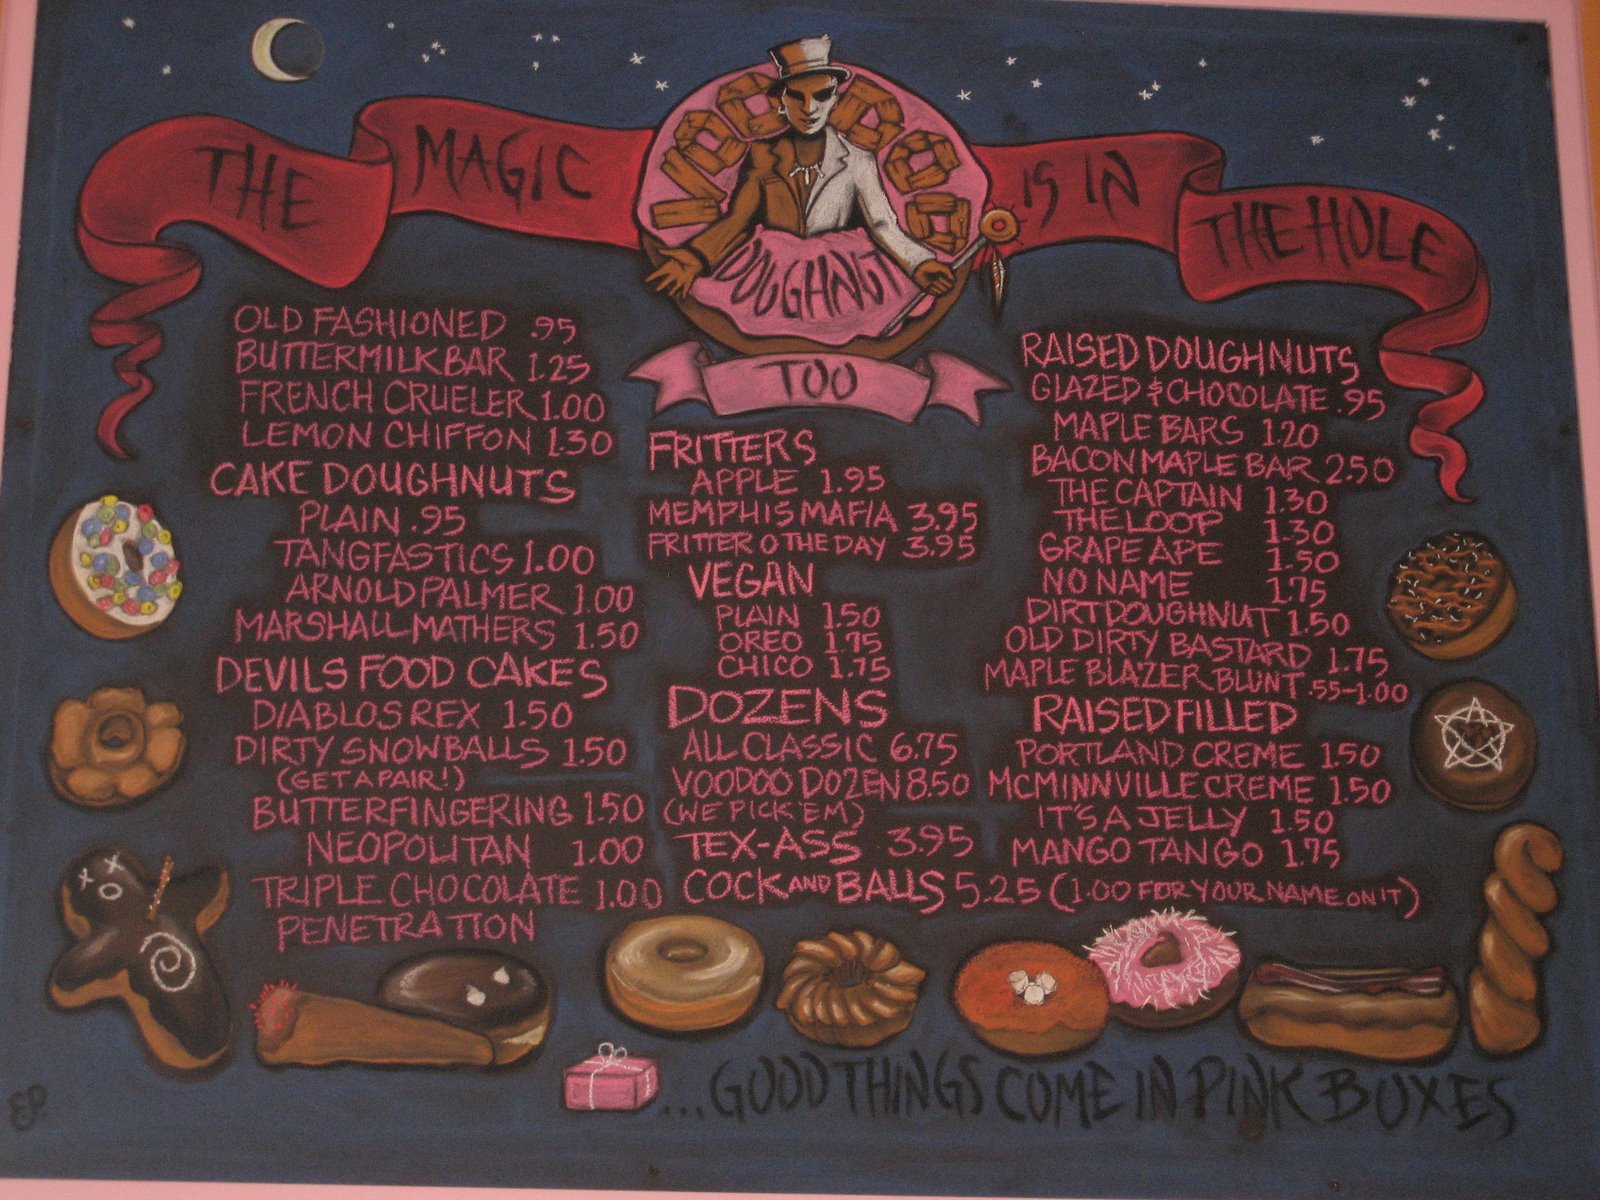 THE MAGIC IS IN THE HOLE
VOODOO
DOUGHNUT
TOO
OLD FASHIONED .95
BUTTERMILK BAR 1.25
FRENCH CRUELER 1.00
LEMON CHIFFON 1.30
CAKE DOUGHNUTS
PLAIN .95
TANGFASTICS 1.00
ARNOLD PALMER 1.00
MARSHALL MATHERS 1.50
DEVILS FOOD CAKES
DIABLOS REX 1.50
DIRTY SNOWBALLS 1.50
(GET A PAIR!)
BUTTERFINGERING 1.50
NEOPOLITAN 1.00
TRIPLE CHOCOLATE 1.00
PENETRATION
FRITTERS
APPLE 1.95
MEMPHIS MAFIA 3.95
FRITTER O THE DAY 3.95
VEGAN
PLAIN 1.50
OREO 1.75
CHICO 1.75
DOZENS
ALL CLASSIC 6.75
VOODOO DOZEN 8.50
(WE PICK 'EM)
TEX-ASS 3.95
COCK AND BALLS 5.25 (1.00 FOR YOUR NAME ON IT)
RAISED DOUGHNUTS
GLAZED & CHOCOLATE .95
MAPLE BARS 1.20
BACON MAPLE BAR 2.50
THE CAPTAIN 1.30
THE LOOP 1.30
GRAPE APE 1.50
NO NAME 1.75
DIRT DOUGHNUT 1.50
OLD DIRTY BASTARD 1.75
MAPLE BLAZER BLUNT .55-1.00
RAISED FILLED
PORTLAND CREME 1.50
MCMINNVILLE CREME 1.50
IT'S A JELLY 1.50
MANGO TANGO 1.75
...GOOD THINGS COME IN PINK BOXES